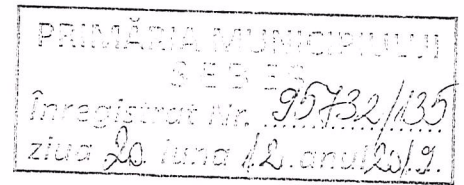 PRIMĂRIA MUNICIPIULUI
SEBEȘ
Înregistrat Nr. 95732/135
ziua 20 luna 12 anul 2019.